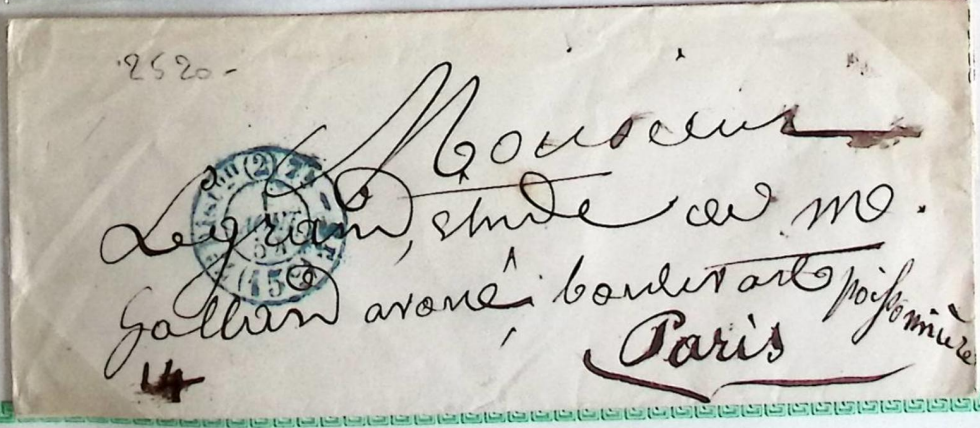 2520-
Monsieur
Legrand, etude de me.
Galland avoué boulevart poissonnière
Paris
14
(2)
(15e)